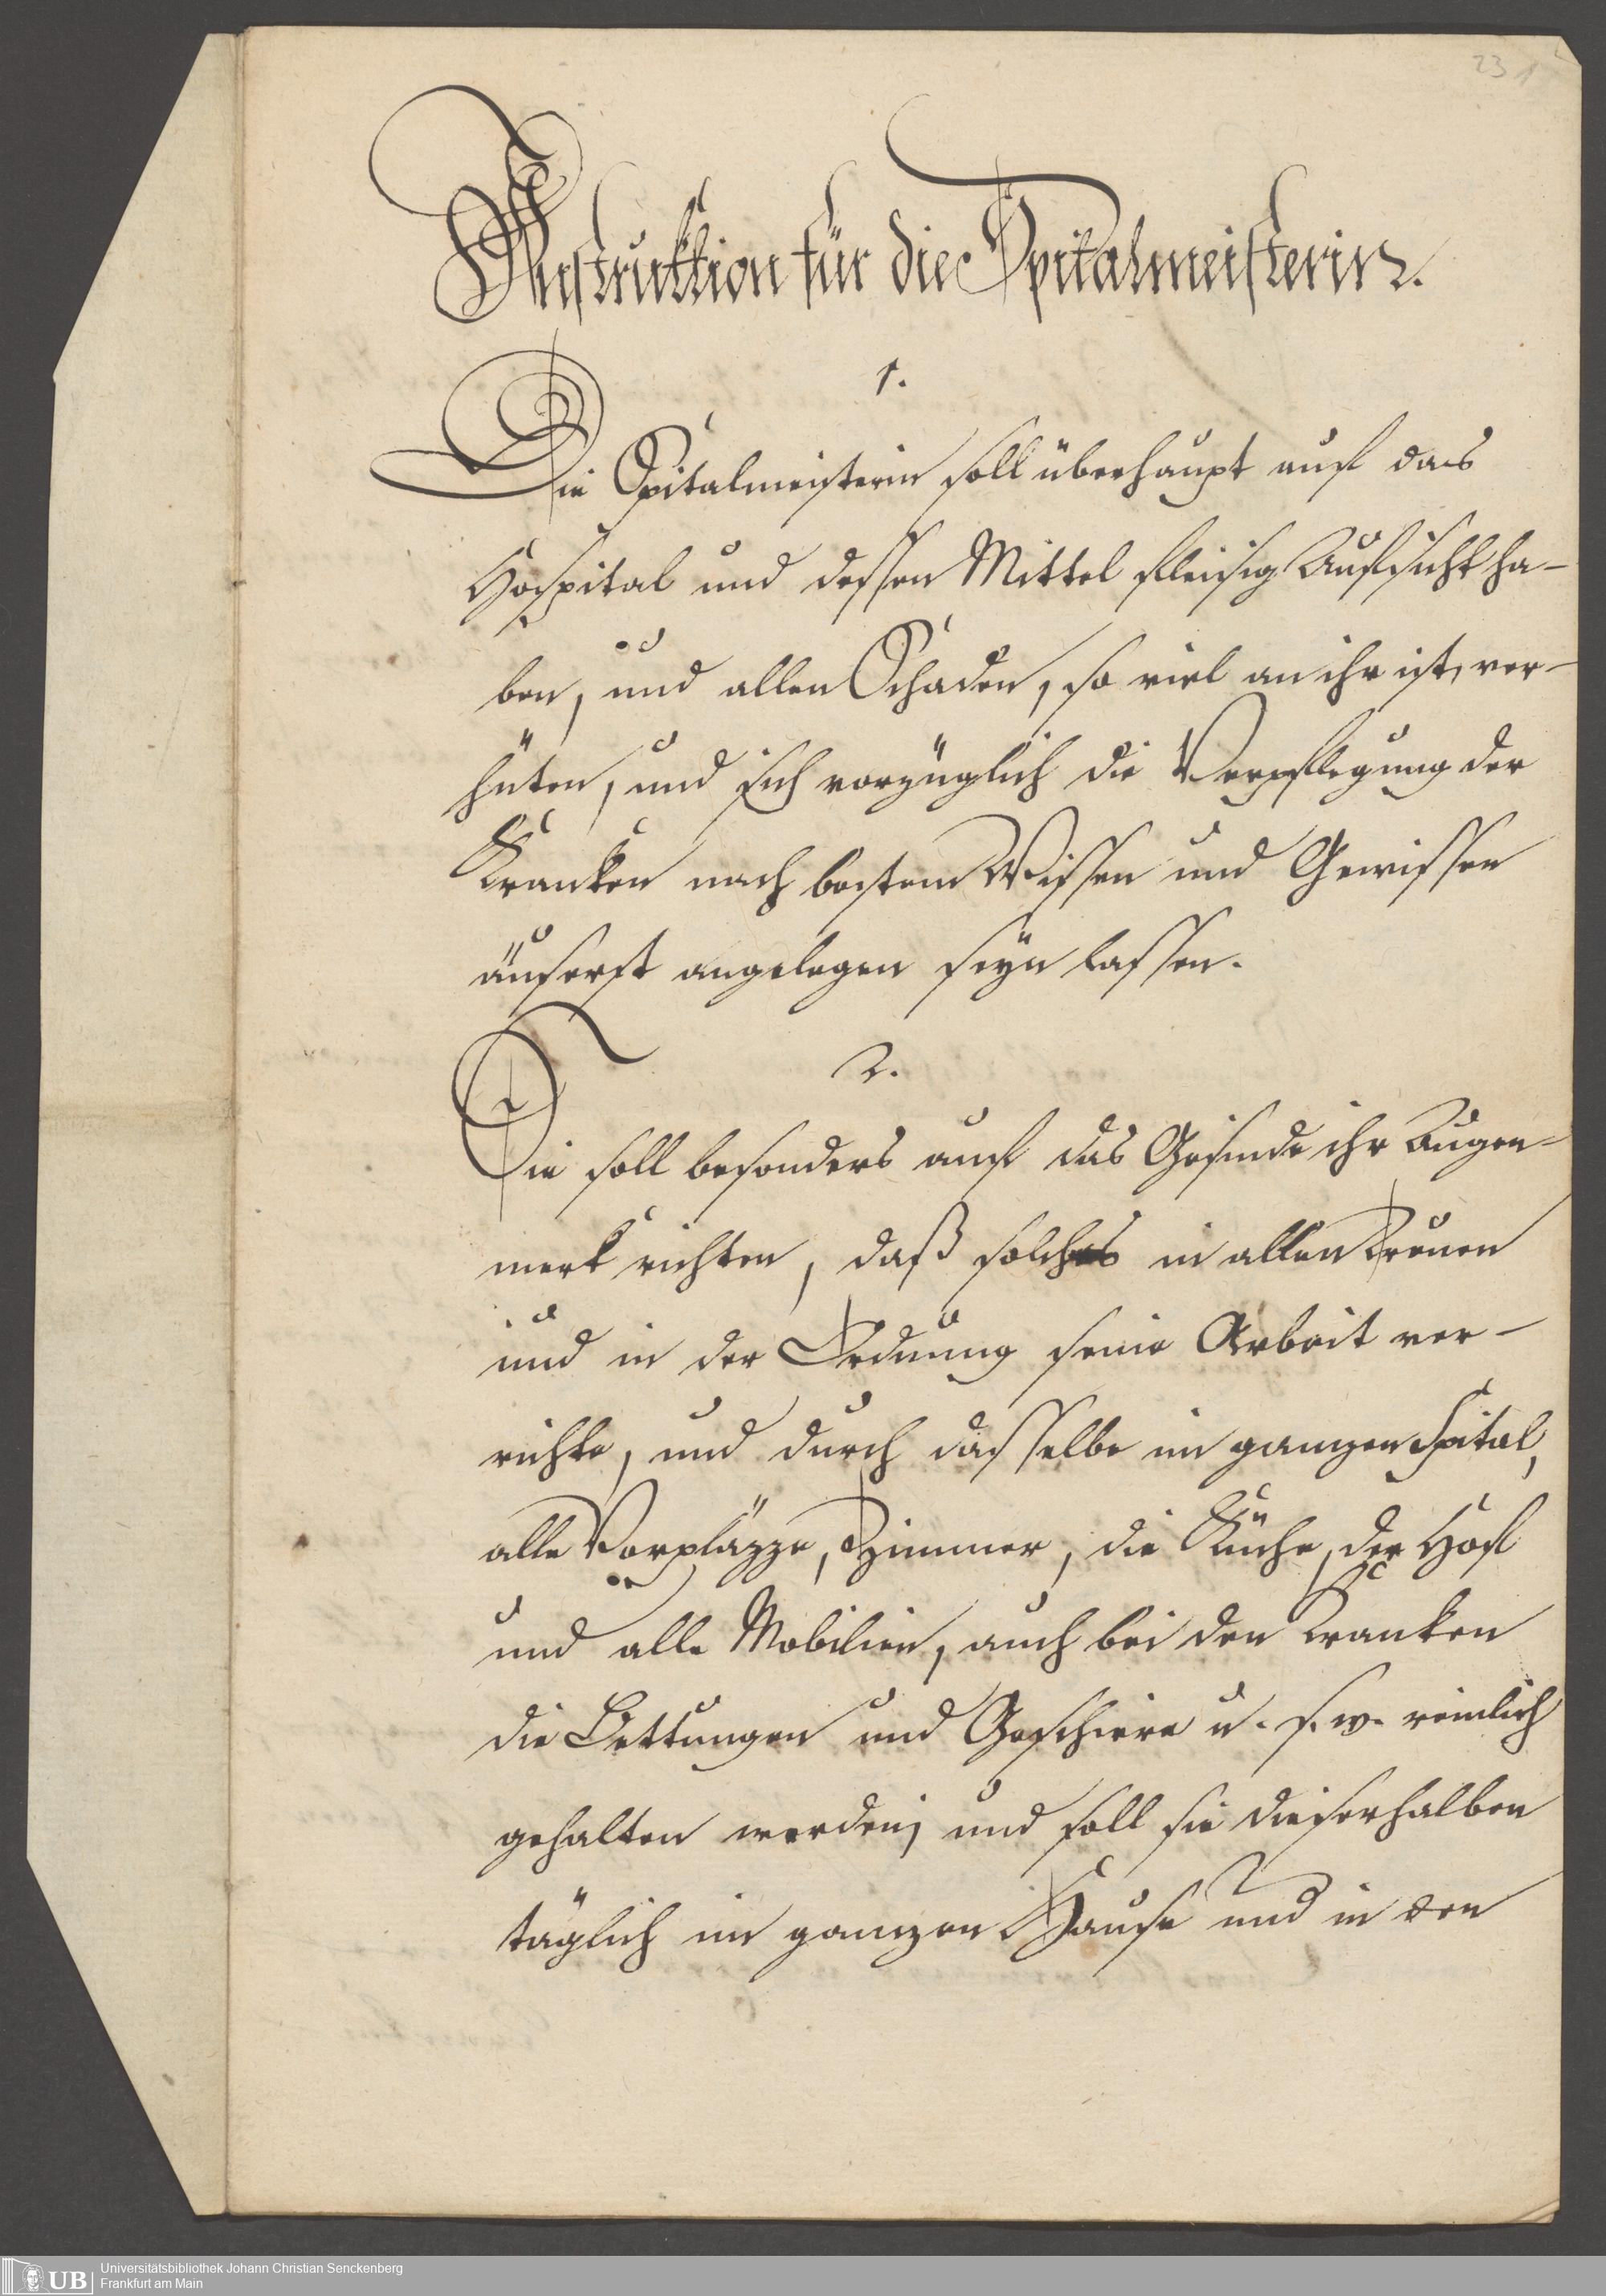 23 1
Instruktion für die Spitalmeisterin.
1.
Die Spitalmeisterin soll überhaupt auf das
Hospital und dessen Mittel fleisig Aufsicht ha-
ben, und allen Schaden, so viel an ihr ist, ver-
hüten, und sich vorzüglich die Verpflegung der
Kranken nach bestem Wissen und Gewissen
äuserst angelegen seyn lassen.
2.
Sie soll besonders auf das Gesinde ihr Augen-
merk richten, daß solches in allen Treuen
und in der Ordnung seine Arbeit ver-
richte, und durch dasselbe im ganzen Spital,
alle Vorpläzze, Zimmer, die Küche, der Hof
und alle Mobilien, auch bei den Kranken
die Bettungen und Geschirre u. s. w. reinlich
gehalten werden; und soll sie dieserhalben
täglich im ganzen Hause und in den
UB Universitätsbibliothek Johann Christian Senckenberg
Frankfurt am Main